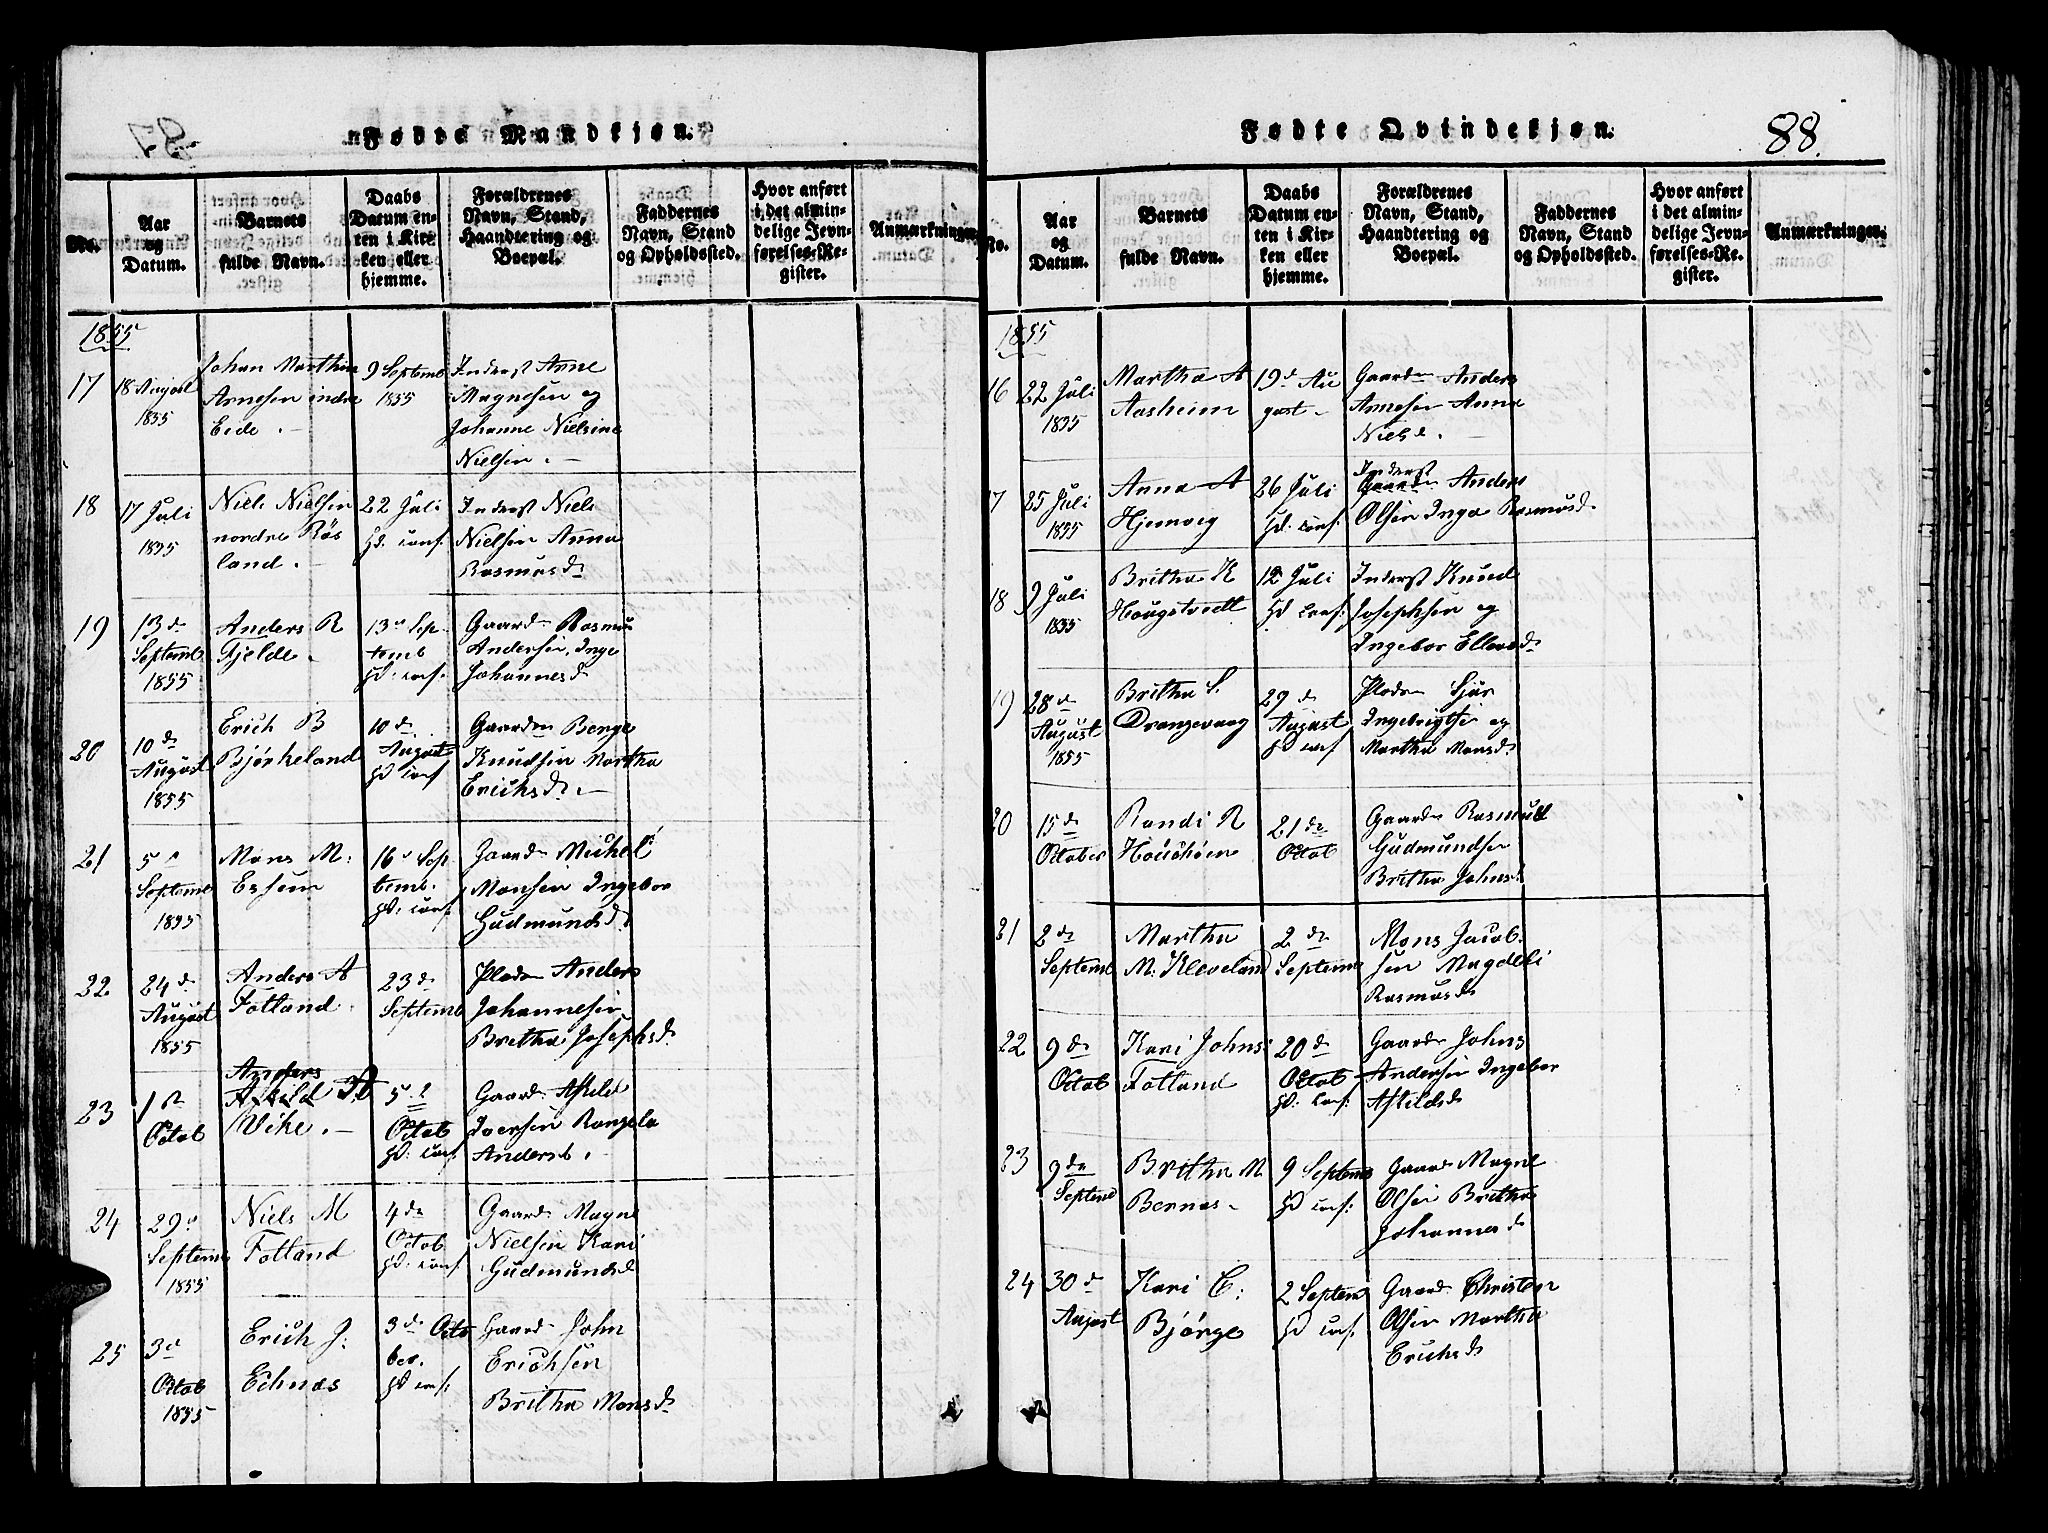 Fødte Mandkjøn.
No.
Aar
og
Datum.
Barnets
fulde Navn.
Daabs
Datum en-
ten i Kir-
ken eller
hjemme.
Forældrenes
Navn, Stand,
Haandtering og
Boepæl.
Faddernes
Navn, Stand
og Opholdssted.
Hvor anført
i det almin-
delige Jevn-
førelses-Re-
gister.
Anmærkninger.
1855
17
18 August
1855
Johan Marthin
Arnesen indre
Eide.
9 Septemb
1855
Inderst Arne
Magnesen og
Johanne Nielsine
Nielsen.
18
17 Juli
1855
Niels Nielsen
nordre Røs
land.
22 Juli
Hd. conf.
Inderst Niels
Nielsen Anna
Rasmusd.
19
13 d
Septemb
1855
Anders R
Fjelde.
13 Sep
temb
Hd: conf.
Gaardm Rasmus
Andersen. Inge
Johannesd
20
10 de
August
1855
Erich B
Bjørkeland
10 de
August
Hd conf
Gaardm Berge
Knudsen Martha
Erichsd.
21
5
Septemb
1855
Mons M:
Eshein
16 Sep
temb.
Hd: conf.
Gaardm Michel
Monsen Ingebor
Gudmundsd.
22
24 d
August
1855
Anders A
Fotland.
23 d
Septemb
Pladsm Anders
Johannesen
Britha Josephsd.
23
1
Octob
Anders
A
Vike.
5
Octob
Hd: conf
Gaardm Askild
Iversen Rangela
Andersd.
24
29
Septemb
1855
Niels M
Fotland
4 de
Octob
Hd: conf
Gaardm Magne
Nielsen Kari
Gudmundsd
25
3 d
Octob
1855
Erich J.
Echnæs
3 de Octo
ber.
Hd conf:
Gaardm John
Erichsen
Britha Monsd
Fødte Qvindekjøn.
88.
No.
Aar
og
Datum.
Barnets
fulde Navn.
Daabs
Datum en-
ten i Kir-
ken eller
hjemme.
Forældrenes
Navn, Stand,
Haandtering og
Boepæl.
Faddernes
Navn, Stand
og Opholdssted.
Hvor anført
i det almin-
delige Jevn-
førelses-Re-
gister.
Anmærkninger.
1855
16
22 Juli
1855
Martha A
Aasheim
19 d Au
gust
Gaardm Anders
Arnesen Anna
Nielsd.
17
25 Juli
1855
Anna A
Hjemveg
26 Juli
Hd. conf
Inderst
Gaardm Anders
Olsen Inga Rasmusd.
18
9 Juli
1855
Britha K
Hougstvedt
12 Juli
Hd conf:
Inderst Knud
Josephsen og
Ingebor Ellensd.
19
28 d
August
1855
Britha S.
Drangevaag
29 d
August
Hd conf
Pladsm Sjur
Ingebrigtsen og
Martha Monsd.
20
15 de
October
Randi R
21 de
Octob
Gaardm Rasmus
Gudmundsen
Britha Johnsd
21
2 de
Septemb
Martha
M: Kleveland
2 de
Septemb
Mons Jacob-
sen Magdeli
Rasmusd
22
9 de
Octob
Kari Johns:
Fotland
20 de
Octob
Hd: conf:
Gaardm Johns
Andersen Ingebor
Askildsd
23
9 de
Septemb
Britha M
Bernæs.
9 Septemb
Hd conf:
Gaardm Magne
Olsen Britha
Johannesd
24
30 d
August
Kari C:
Bjørge
2 Septemb
Hd conf.
Gaardm Christen
Olsen Martha
Erichsd